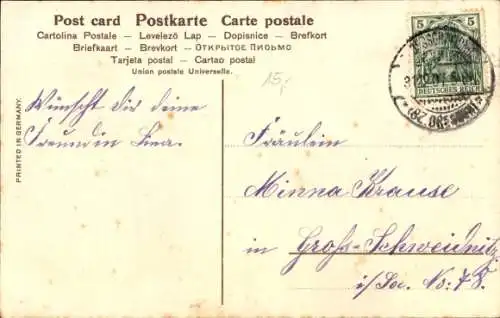 Post card Postkarte Carte postale
Cartolina Postale – Levelező Lap – Dopisnice – Brefkort
Briefkaart – Brevkort – ОТКРЫТОЕ ПИСЬМО
Tarjeta postal – Cartao postal
Union postale Universelle.
5 5
DEUTSCHES REICH
(BZ DRESDEN)
15,-
PRINTED IN GERMANY.
Wünscht Dir Deine
Freundin
Fräulein
Minna Krause
in Groß-Schweidnitz
i/Sa. No: 78.